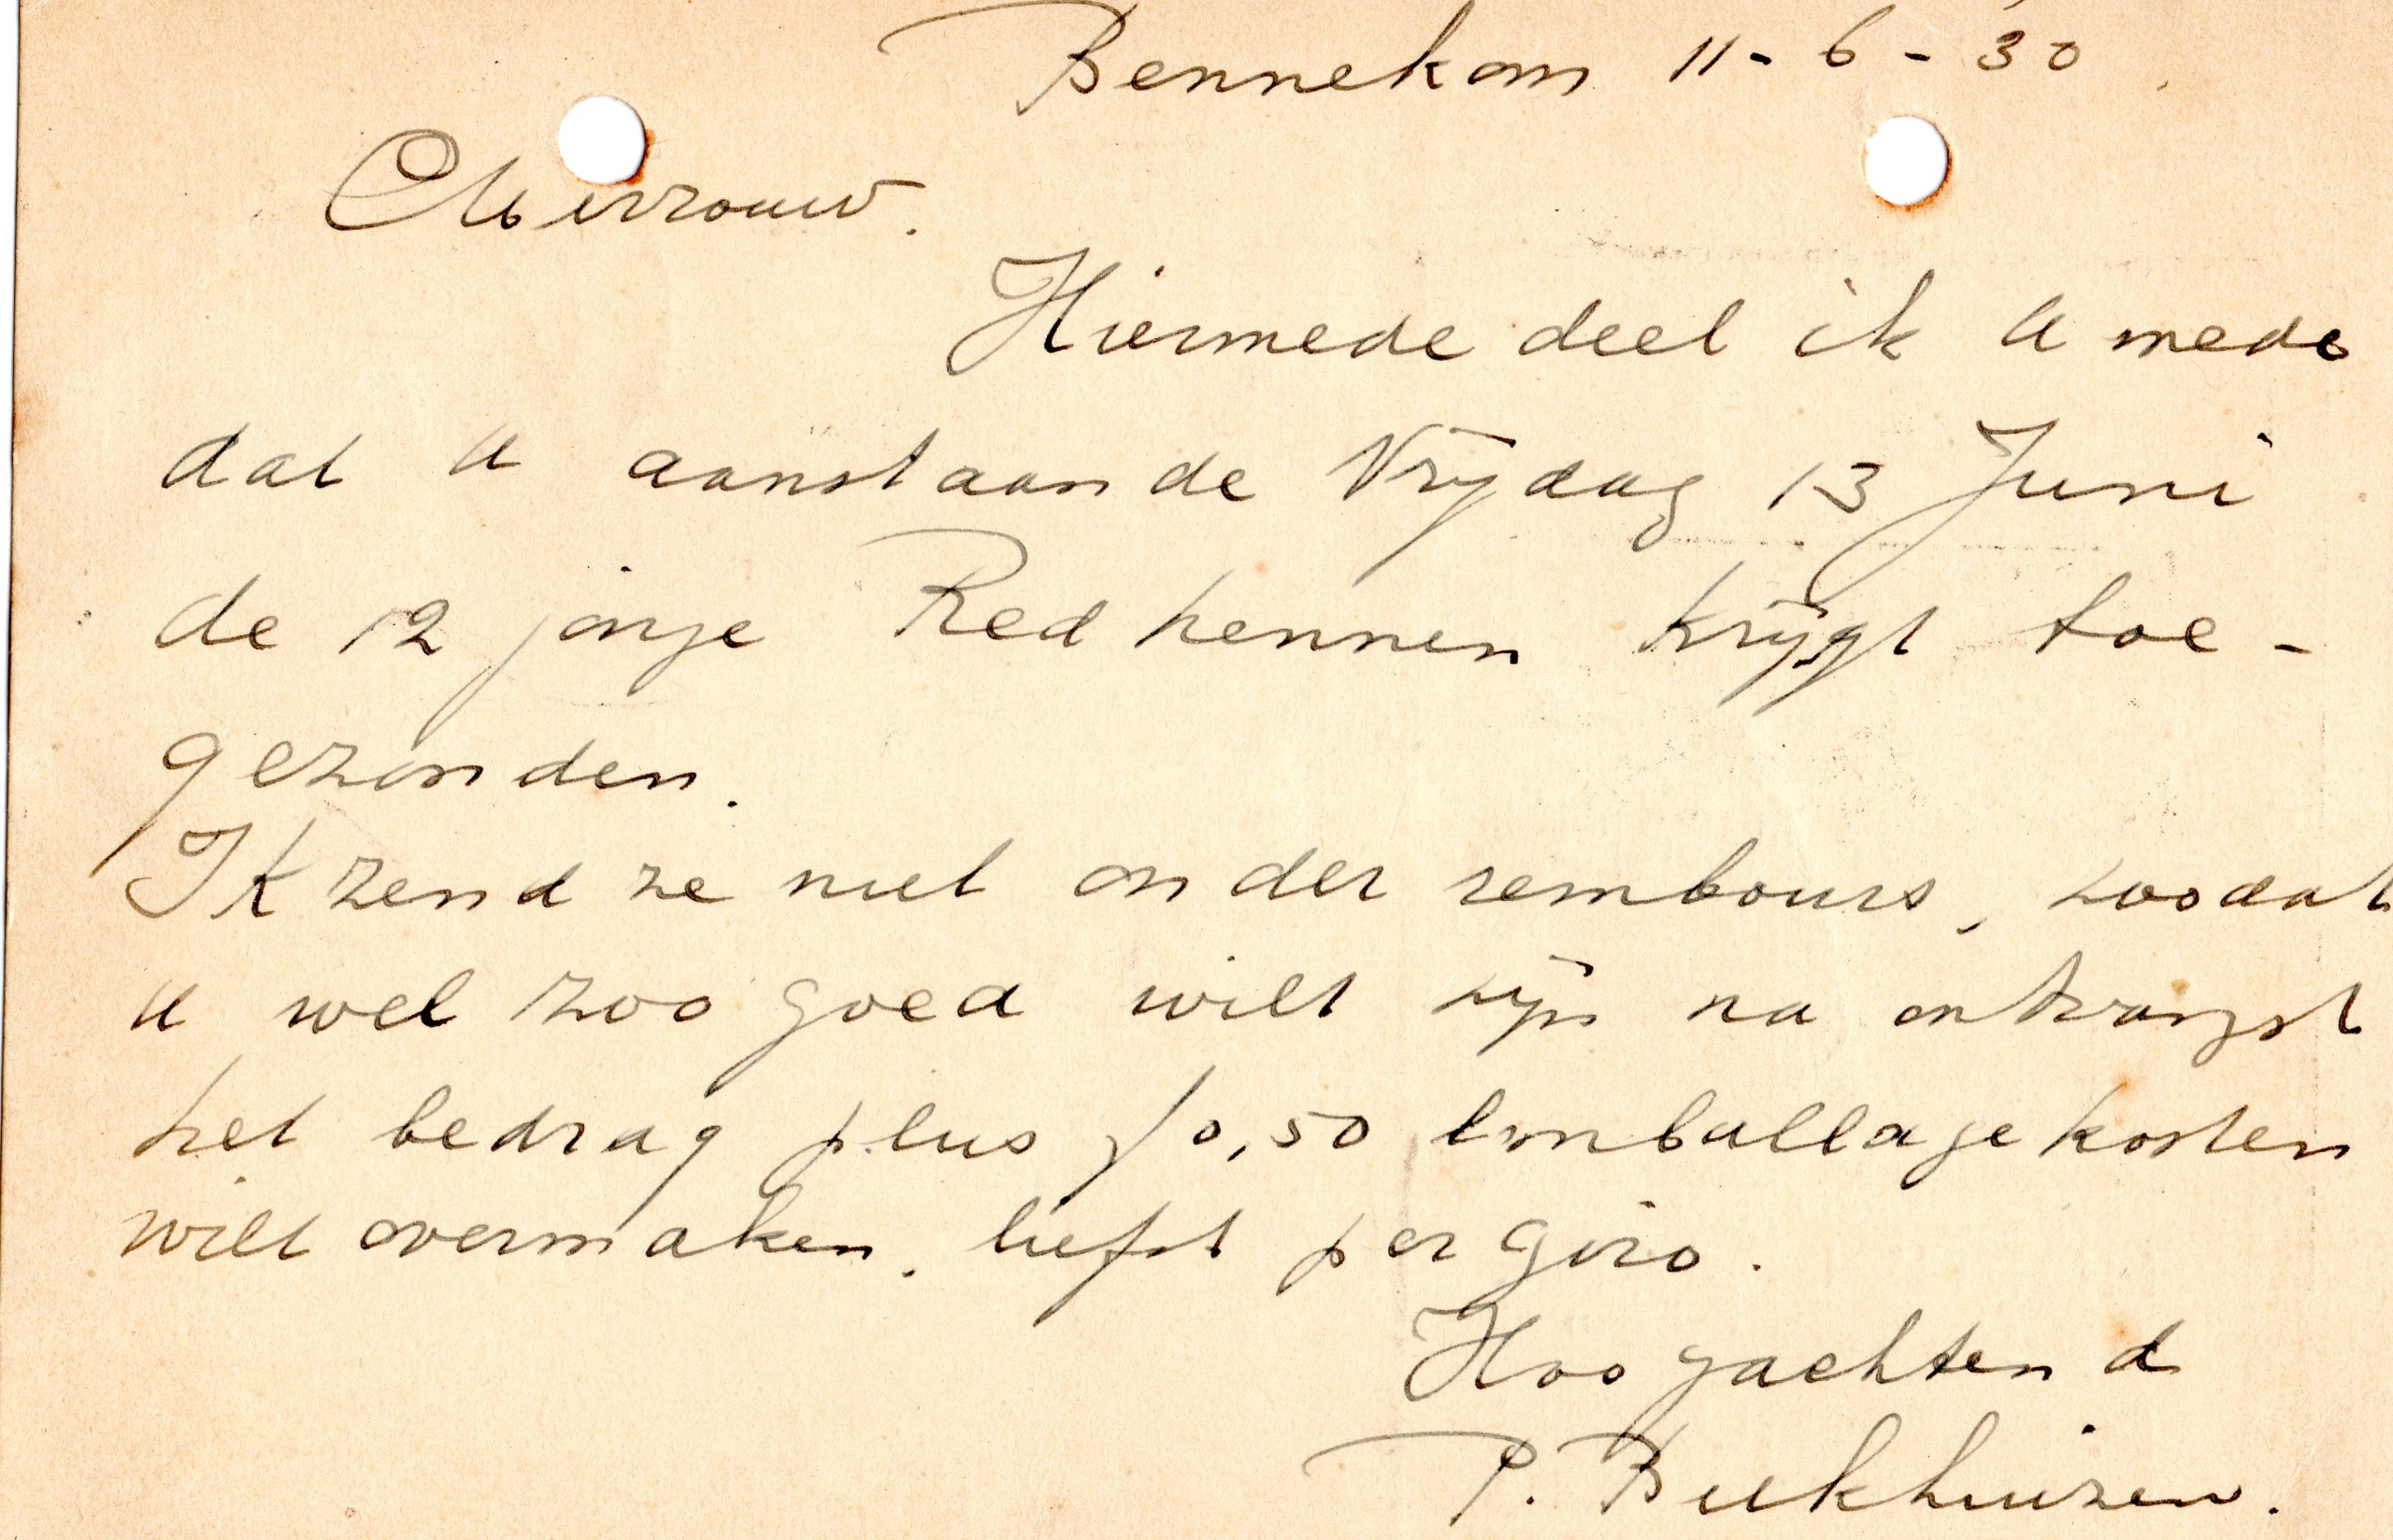 Bennekom 11-6-30
Mevrouw.
Hiermede deel ik U mede
dat U aanstaande Vrijdag 13 Juni
de 12 jonge Red hennen krijgt toe-
gezonden.
Ik zend ze niet onder rembours, zoodat
U wel zoo goed wilt zijn na ontvangst
het bedrag plus f 0,50 emballage kosten
wilt overmaken. liefst per giro.
Hoogachtend
P.